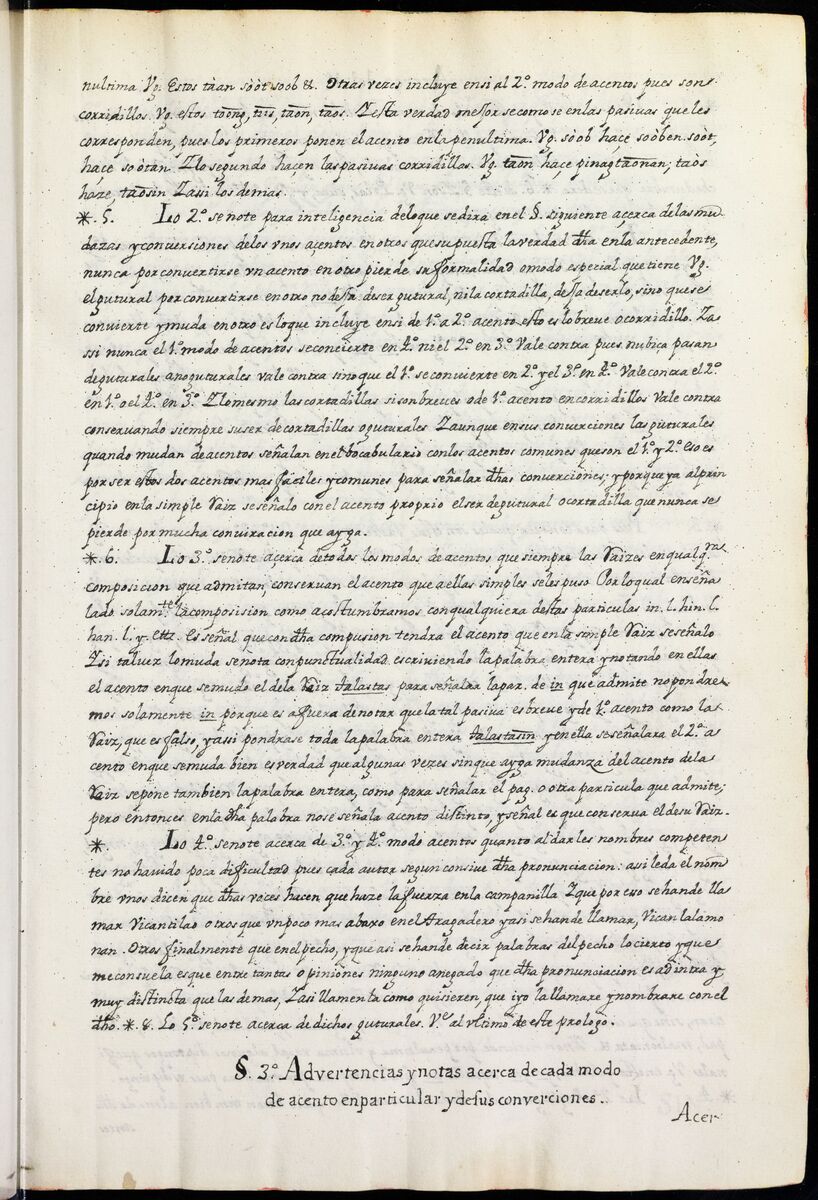 nultima Vg. Estos tàan sòòt soob &. Otras vezes incluye ensi al 2º. modo de acentos pues son
corridillos. Vg. estos toōng, tiis, taōn, taos. Zesta verdad mejor se conose en las pasivas que les
corresponden, pues los primeros ponen el acento en la penultima. Vg. sòob hace soòben. soòt,
hace soòtan. Zlo segundo hacen las pasivas corridillas. Vg. taōn hace pinagtaōnan; taos
haze, taosin Zassi los demas.
*. 5. Lo 2º. se note para inteligencia delo que se dira en el §. siguiente acerca de las mu
dazas y conversiones delos vnos açentos en otros que supuesta la verdad dha en la antecedente,
nunca por convertirse vn acento en otro pierde su formalidad o modo especial que tiene Vg.
el gutural por convertirse en otro no desja deser gutural, ni la cortadilla, desja deserlo, sino que se
convierte y muda en otro es lo que incluye ensi de 1º. a 2º. acento esto es lo breve o corridillo. Za
ssi nunca el 1º. modo de acentos se convierte en 4º. ni el 2º. en 3º. Vale contra pues nunca pasan
de guturales ano guturales vale contra sino que el 1º. se convierte en 2º. y el 3º. en 4º. Vale contra el 2º.
en 1º. o el 4º. en 3º. Zlo mesmo las cortadillas si son breves o de 1º. acento en corridillos Vale contra
conservando siempre su ser de cortadillas o guturales Zaunque en sus converciones las guturales
quando mudan de acentos señalan en el bocabulario con los acentos comunes que son el 1º. y 2º. Eso es
por ser estos dos acentos mas façiles y comunes para señalar dhas converciones; y porque ya al prin
cipio en la simple Raiz se señalo con el acento proprio el ser de gutural o cortadilla que nunca se
pierde por mucha que ayga.
*. 6. Lo 3º. se note acerca de todos los modos de acentos que siempre las Raizes en qualqra
composicion que admitan, conservan el acento que a ellas simples se les puso Por lo qual enseña
lado solamte. la composision como acostumbramos con qualquiera destas particulas in. l. hin. l.
han. l. y. Ettz. Es señal que con dha tendra el acento que en la simple Raiz se señalo
Zsi talvez lo muda se nota con punctualidad escriviendo la palabra entera y notando en ellas
el acento en que se mudo el dela Raiz talastas para señalar la par. de in que admite no pondre
mos solamente in porque es a fuera de notar que la tal pasiva es breve y de 1º. acento como la
Raiz, que es falso, y assi pondrase toda la palabra entera talastasin y en ella se señalara el 2º. a
cento en que se muda bien es verdad que algunas vezes sin que ayga mudanza del acento dela
Raiz se pone tambien la palabra entera, como para señalar el pag. o otra particula que admite;
pero entonces en la dha palabra no se señala acento distinto, y señal es que conserva el desu Raiz.
*. Lo 4º. se note acerca de 3º. y 4º. modo acentos quanto al darles nombres competen
tes no havido poca dificultad pues cada autor segun dha pronunciacion: asi le da el nom
bre vnos dicen que dhas voces hacen que haze la fuerza en la campanilla Zque por esso se han de lla
mar Vicantilao otros que vn poco mas abaxo en el tragadero y asi se han de llamar, Vican lalamo
nan. Otros finalmente que en el pecho, y que asi se han de decir palabras del pecho lo cierto y que
me consuela es que entre tantas opiniones ninguno a negado que dha pronunciacion es ad intra y
muy distincta que las demas, Zasi llamenta como quisieren, que iyo la llamare y nombrare con el
dho. *. 8. Lo 5º. se note acerca de dichos guturales. Ve. al vltimo de este prologo.
§. 3º. Advertencias y notas acerca de cada modo
de acento en particular y de sus converciones.
Acer